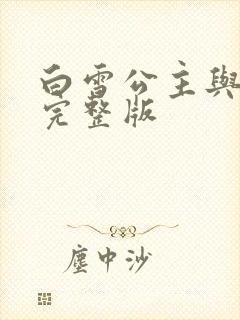 白雪公主與
完整版
塵中沙